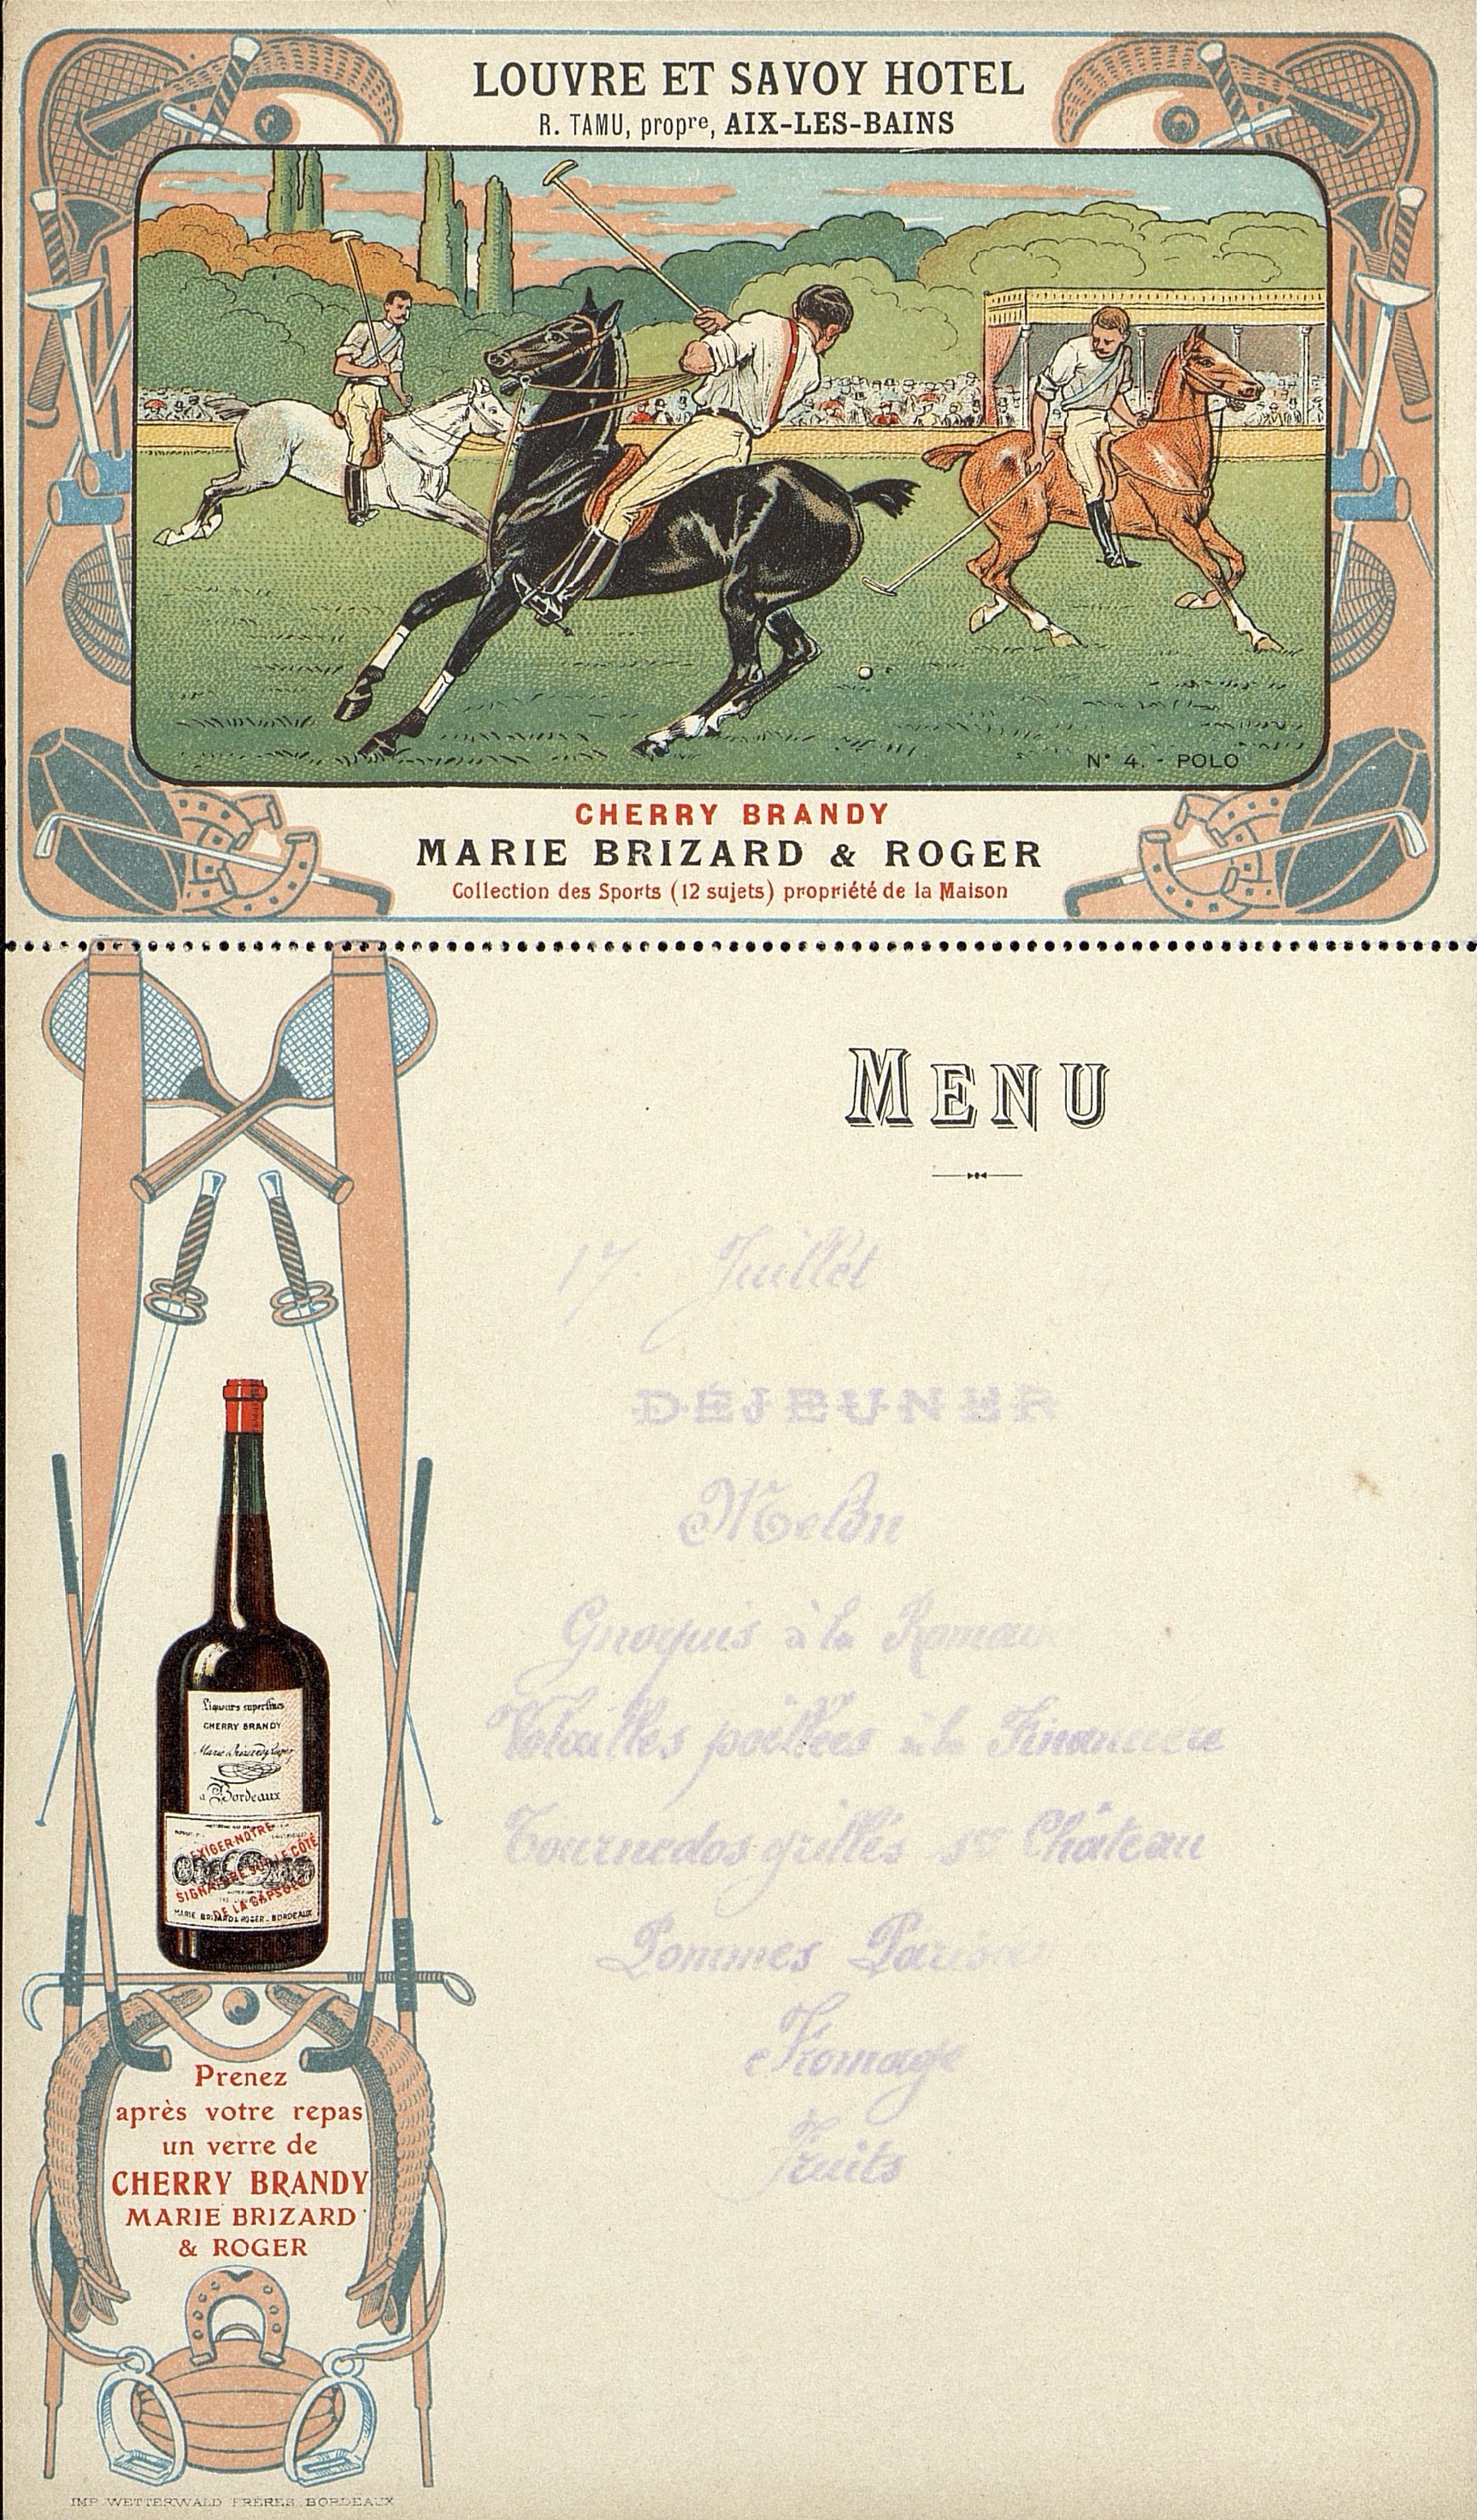 LOUVRE ET SAVOY HOTEL
R. TAMU, propre, AIX-LES-BAINS
N° 4. - POLO
CHERRY BRANDY
MARIE BRIZARD & ROGER
Collection des Sports (12 sujets) propriété de la Maison
MENU
17. Juillet
DÉJEUNER
Melon
Gnoquis à la
Volailles poëllées à la Financière
Tournedos grillés sce Château
Pommes
Fromage
Fruits
Liqueurs superfines
CHERRY BRANDY
Marie Brizard & Roger
à Bordeaux
EXIGER NOTRE
SIGNATURE SUR LE CÔTÉ
DE LA CAPSULE
MARIE BRIZARD & ROGER - BORDEAUX
Prenez
après votre repas
un verre de
CHERRY BRANDY
MARIE BRIZARD
& ROGER
IMP. WETTERWALD FRÈRES. BORDEAUX